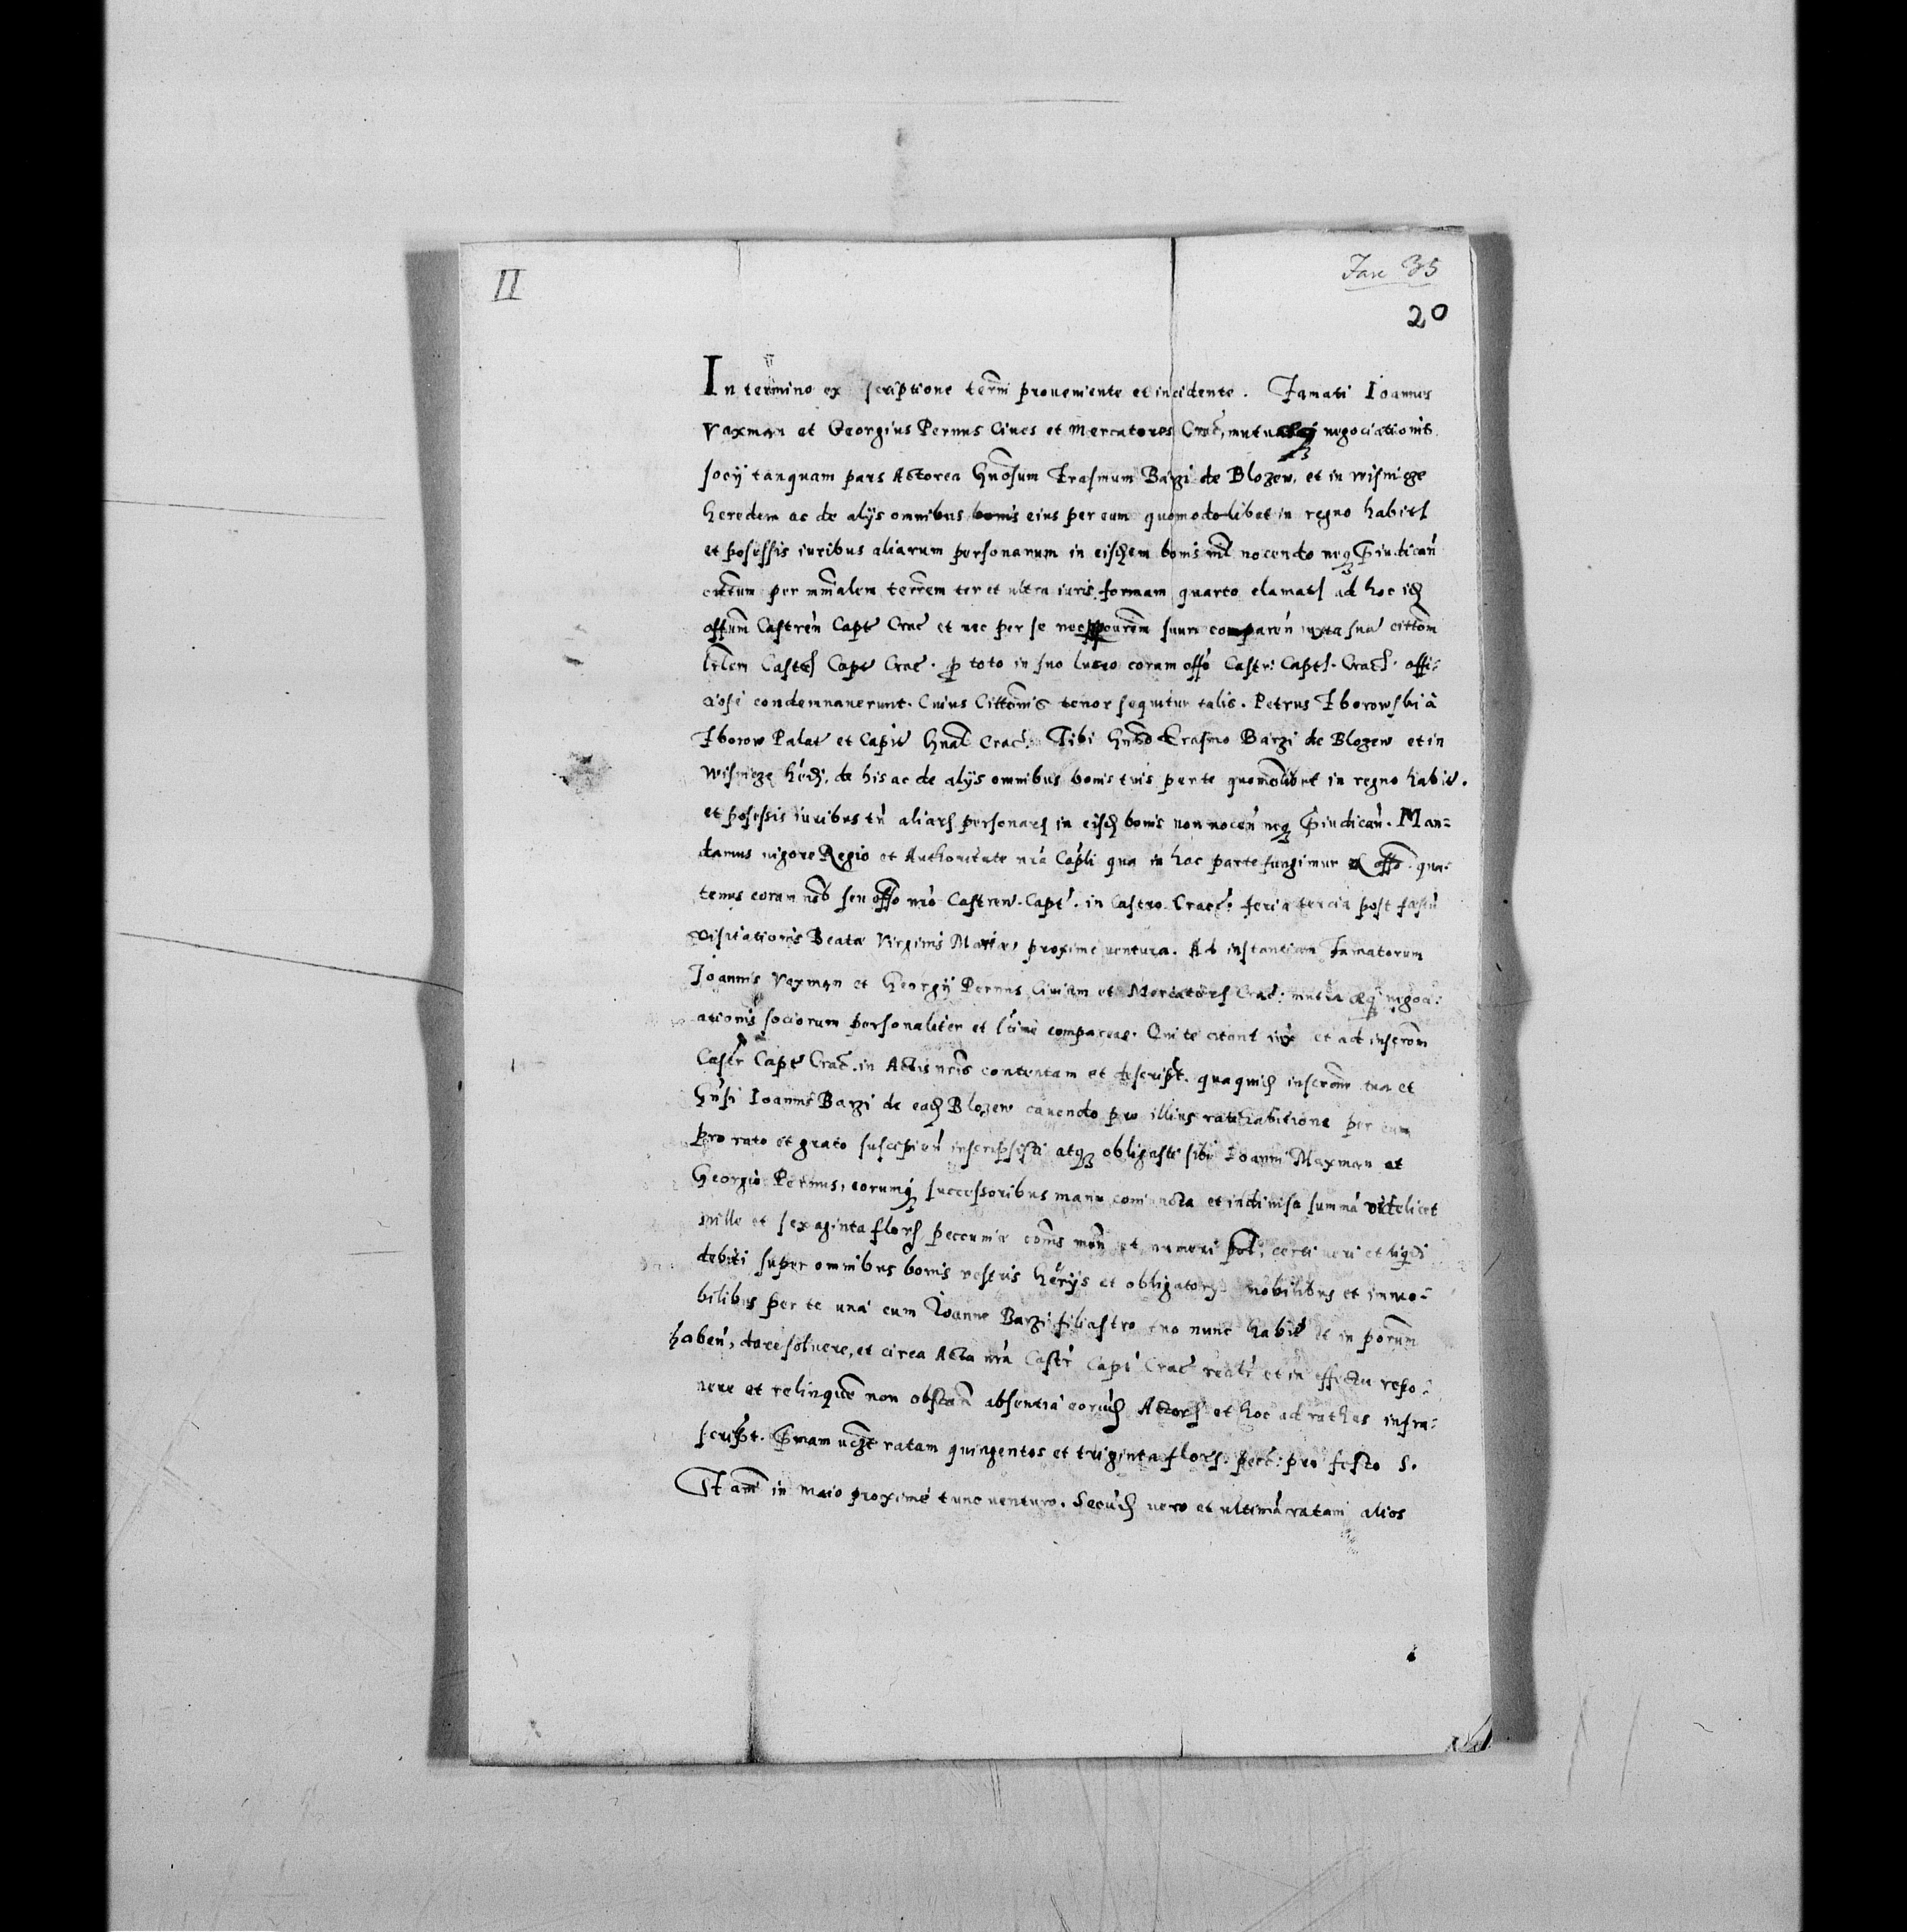 II
Fasc 35
20
In termino ex scriptione termi proueniente et incidente. Famati Ioannes
Vaxman et Georgius Pernus Ciues et Mercatores Crac, mutuæq negociationis
socij tanquam pars Actorea Gnosum Erasmum Barzi de Blozew, et in wisnicze
heredem ac de alijs omnibus bonis eius per eum quomodolibet in regno habit
et posessis iuribus aliarum personarum in eisdem bonis nil nocendo neq piudican
citum per mnalem terrem ter et ultra iuris formam quarto clamat ad hoc id
offum Castren Capt Crac et nec per se nec procurem suum comparen iuxta sua cittom
lrlem Castr Capt Crac. p toto in suo lucro coram offo Castri Capt. Crac. offi:
ciose condemnauerunt. Cuius Cittonis tenor sequitur talis. Petrus Zborowski à
Zborow Palat et Capit Gnal Crac. Tibi Gnoso Erasmo Barzi de Blozew et in
Wisnicze hrdi, de his ac de alijs omnibus bonis tuis per te quomolibet in regno habit.
et posessis iuribus tn aliars personars in eisd bonis non nocen neq piudican. Man=
damus vigore Regio et Authoritate nra Capli qua in hac parte fungimur ex offo. qua:
tenus coram nob seu offo nro Castren. Capt. in Castro Crac: feria tercia post festu
visitationis Beata Virginis Maria, proxime ventura. Ad instantiam Famatorum
Ioannis Vaxman et Georgij Pernus Ciuium et Mercators Crac: mutuæq negoci:
ationis sociorum personaliter et ltime compareas. Qui te citant iux et ad inscrom
Castr Capt Crac. in Actis nris contentam et descript. qua quid inscrone tua et
Gnsi Ioannis Barzi de ead Blozew cauendo pro illius ratihabitione per eum
pro rato et grato suscipien inscripsisti atq obligasti sibi Ioanni Maxman et
Georgio Pernus, eorumq successoribus manu coniuncta et indiuisa summa videlicet
mille et sexaginta flors peccunia coms mon et numeri pol, certi ueri et liqdi
debiti super omnibus bonis vestris herijs et obligatorijs mobilibus et immo=
bilibus per te una cum Ioanne Barzi filiastro tuo nunc habit et in porum
haben, dare soluere, et circa Acta nra Castr Capt Crac realr et in effectu repo=
nere et relinquere non obstan absentia eorud Actors et hoc ad rathas infra=
script. Pmam vczt ratam quingentos et triginta flors. pecc: pro festo S.
Stani in Maio proxime tunc venturo. Secund uero et ultima ratam alios